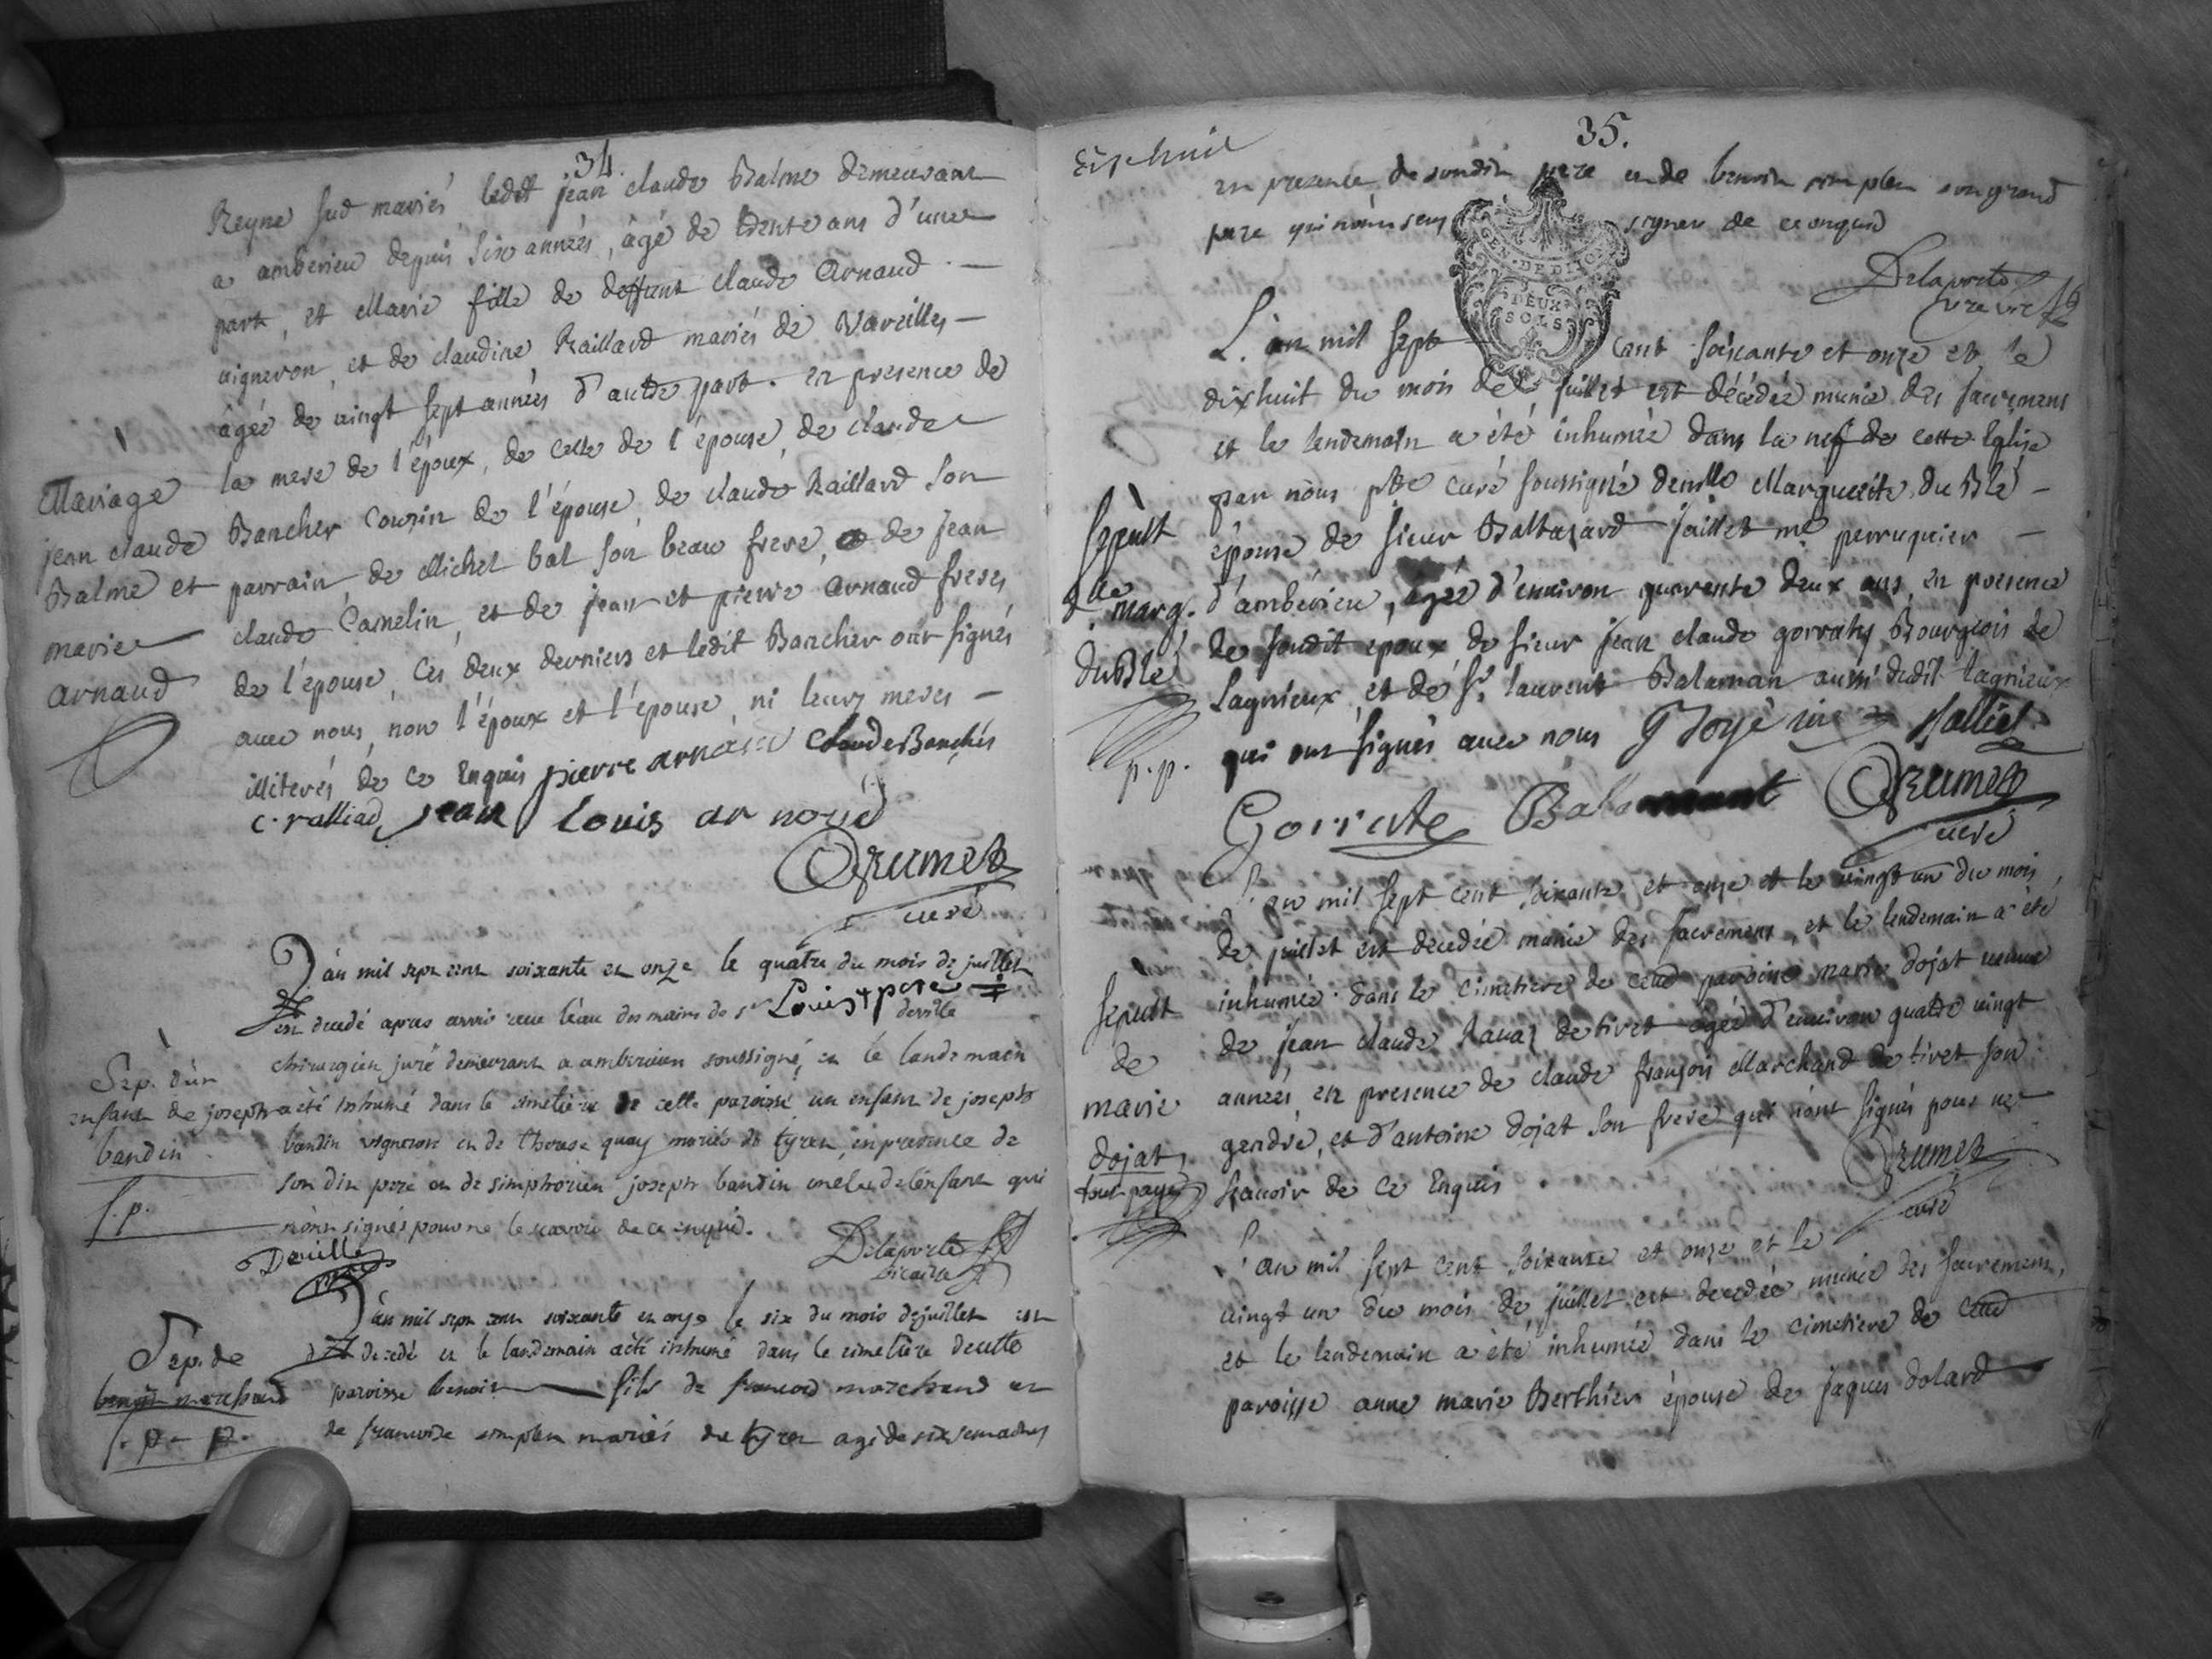 34.
Reyne sud mariés ledit jean claude Balme demeurant
a amberieu depuis six années, âgé de trente ans d'une
part, et Marie fille de deffunt claude Arnaud
vigneron, et de claudine Raillard mariés de Vareilles
âgée de vingt sept années d'autre part. en presence de
la mere de l'époux, de celle de l'épouse, de claude
Bancher Cousin de l'épouse, de claude Raillard son
parrain, de Michel bal son beau frere, de jean
claude Camelin, et de jean et pierre Arnaud freres
de l'épouse, Ces deux derniers et ledit Bancher ont signés
avec nous, non l'époux et l'épouse, ni leurs meres
illiterés de ce Enquis pierre arnaud Claude Banchés
c. ralliad jean Louis ar noud
Grumet
curé
Mariage
jean claude
Balme et
marie
arnaud
L'an mil sept cent soixante et onze le quatre du mois de juillet
est decedé apres avoir receu l'eau des mains de sr Louis + pere
deville
chirurgien juré demeurant a amberieu soussigné, et le landemain
a été inhumé dans le cimetiere de cette paroisse un enfant de joseph
bandin vigneron et de therese quay mariés de tyret, en presence de
son dit pere et de simphorien joseph bandin oncle de l'enfant qui
n'ont signés pour ne le scavoir de ce enquis.
Deville
Delaporte
vicaire
Sep. d'un
enfant de joseph
bandin
f. p.
L'an mil sept cent soixante et onze le six du mois de juillet est
decedé et le landemain a été inhumé dans le cimetiere de cette
paroisse benoit fils de francois marchand et
de francoise simplex mariés de tyret agé de six semaines
Sep. de
benoit marchand
f. p. p.
35.
dix huit
en presence de son dit pere et de benoit simplex son grand
pere qui n'ont sceus signer de ce enquis
Delaporte
vicaire
GEN. DE DIJON
DEUX
SOLS
L'an mil sept cent soixante et onze et le
dixhuit du mois de juillet est décédée munie des sacremens
et le lendemain a été inhumée dans la nef de cette Eglise
par nous ptre curé soussigné demlle Marguerite du Blé
épouse de sieur Baltazard jaillet me perruquier
d'amberieu, agée d'environ quarente deux ans, en presence
de soudit epoux de sieur jean claude gorraty Bourgeois de
Lagnieux, et de sr. laurent Balaman aussi dudit lagnieux
qui ont signés avec nous
Gorrate Balamant Grumet
curé
Sepult
dlle. marg.
du Blé
p. p.
L'an mil sept cent soixante et onze et le vingt un du mois
de juillet est decedée munie des sacremens, et le lendemain a été
inhumée dans le cimetiere de cette paroisse marie dojat veuve
de jean claude Ravaz de tiret agée d'environ quatre vingt
années, en presence de claude françois Marchand de tiret son
gendre, et d'antoine dojat son frere qui n'ont signés pour ne
scavoir de ce Enquis
Grumet
curé
Sepult
de
marie
dojat
tout payé
L'an mil sept cent soixante et onze et le
vingt un du mois de juillet est decedée munie des sacremens,
et le lendemain a été inhumée dans le cimetiere de cette
paroisse anne marie Berthier épouse de jaques dolard